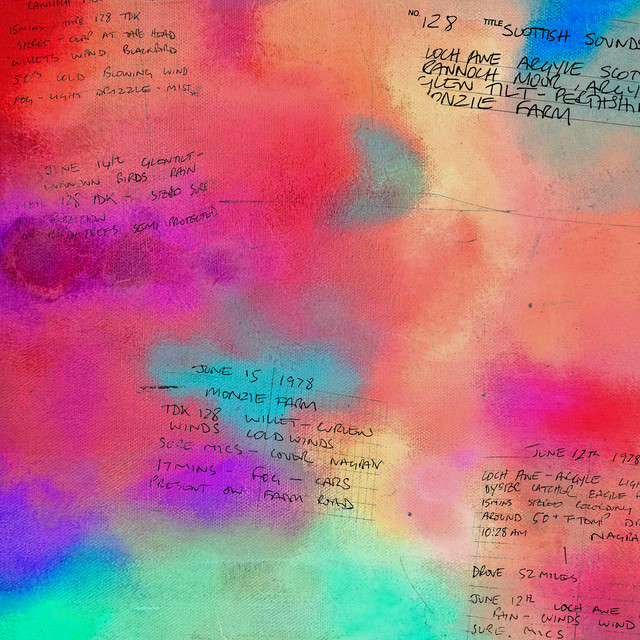 RANNOCH
15MINS TAPE 128 TDK
STEREO - CLAP AT TAPE HEAD
WILLETS WIND BLACKBIRD
50'S COLD BLOWING WIND
FOG - LIGHT DRIZZLE - MIST
NO. 128 TITLE SCOTTISH SOUNDS
LOCH AWE ARGYLE SCOT
RANNOCH MOOR, ARGY
GLEN TILT - PERTHSHI
ONZIE FARM
JUNE 14TH GLENTILT -
UNKNOWN BIRDS RAIN
128 TDK - STEREO SURE
SEMI PROTECTED
JUNE 15 1978
MONZIE FARM
TDK 128 WILLET - CURLEW
WINDS COLD WINDS
SURE MICS - COVER NAGRAN
17MINS - FOG - CARS
PRESENT ON FARM ROAD
JUNE 12TH 1978
LOCH AWE - ARGYLE LIG
OYSTER CATCHER EAGLE
15MINS STEREO RECORDING
AROUND 50+ F TEMP
10:28 AM NAGRA
DROVE 52 MILES
JUNE 12TH LOCH AWE
RAIN - WINDS WIND
SURE MICS